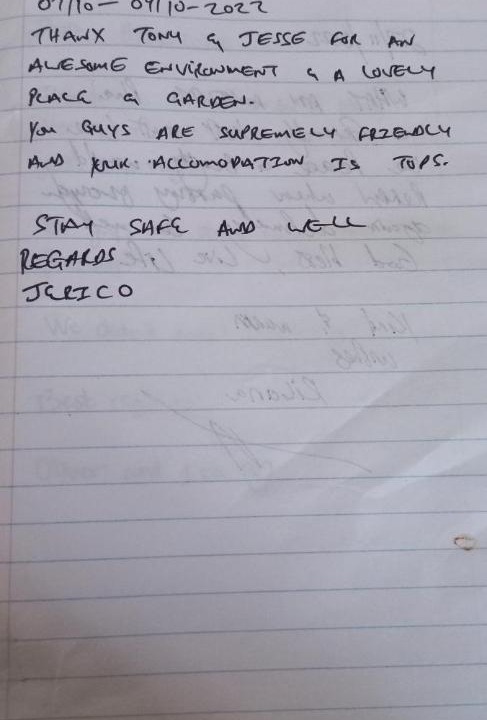 THANX TONY & JESSE FOR AN
AWESOME ENVIRONMENT & A LOVELY
PLACE & GARDEN.
YOU GUYS ARE SUPREMELY FRIENDLY
AND YOUR ACCOMODATION IS TOPS.
STAY SAFE AND WELL
REGARDS
JERICO